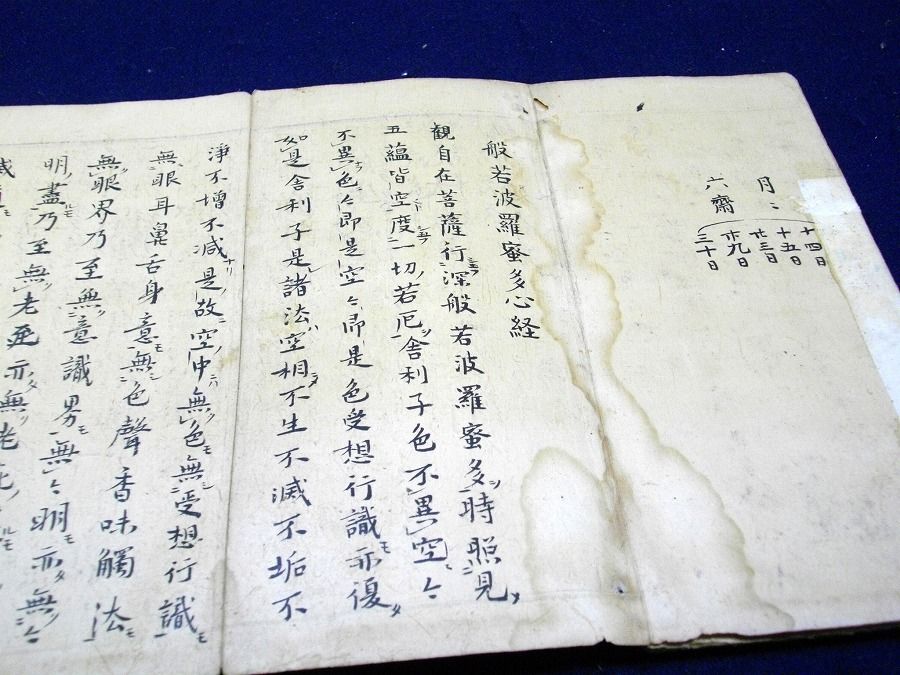 月ニ
六齋
十四日
十五日
廿三日
廿九日
三十日
般若波羅蜜多心経
観自在菩薩行深般若波羅蜜多時照見
五蘊皆空度一切若厄舎利子色不異空々
不異色々即是空々即是色受想行識亦復
如是舎利子是諸法空相不生不滅不垢不
淨不增不減是故空中無色無受想行識
無眼耳鼻舌身意無色聲香味觸法
無眼界乃至無意識界無々明亦無々
明盡乃至無老死亦無老死